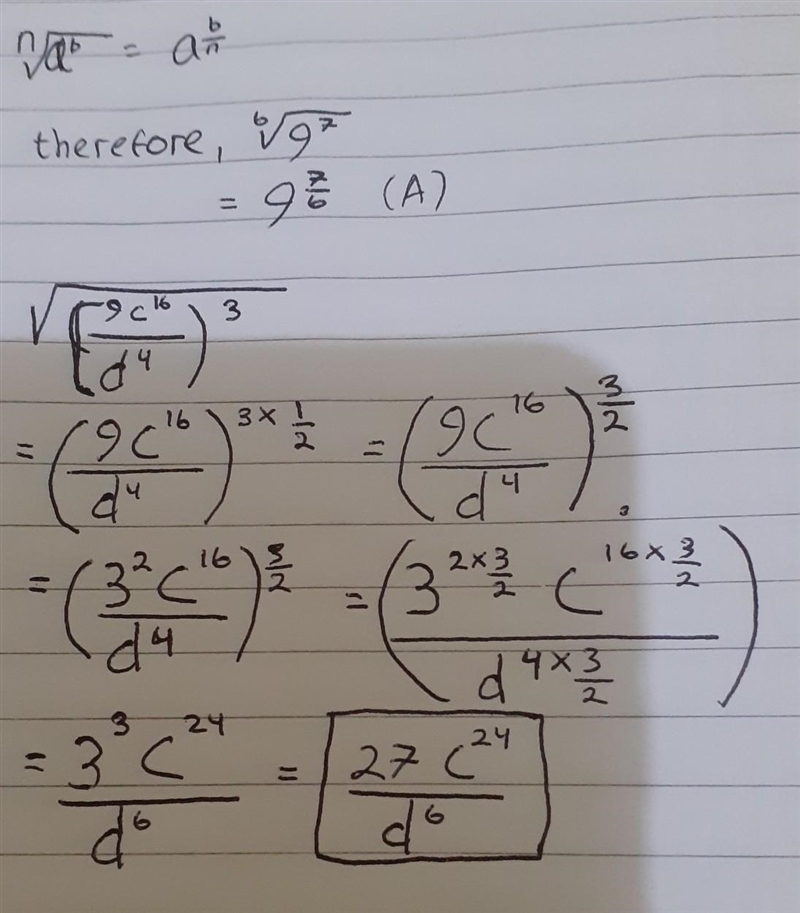 ⁿ√aᵇ = a^(b/n)
therefore, ⁶√9⁷
= 9^(7/6) (A)
√((9c¹⁶/d⁴)³)
= (9c¹⁶/d⁴)^(3×1/2) = (9c¹⁶/d⁴)^(3/2).
= (3²c¹⁶/d⁴)^(3/2) = (3^(2×3/2) c^(16×3/2)/d^(4×3/2))
= 3³c²⁴/d⁶ = 27c²⁴/d⁶